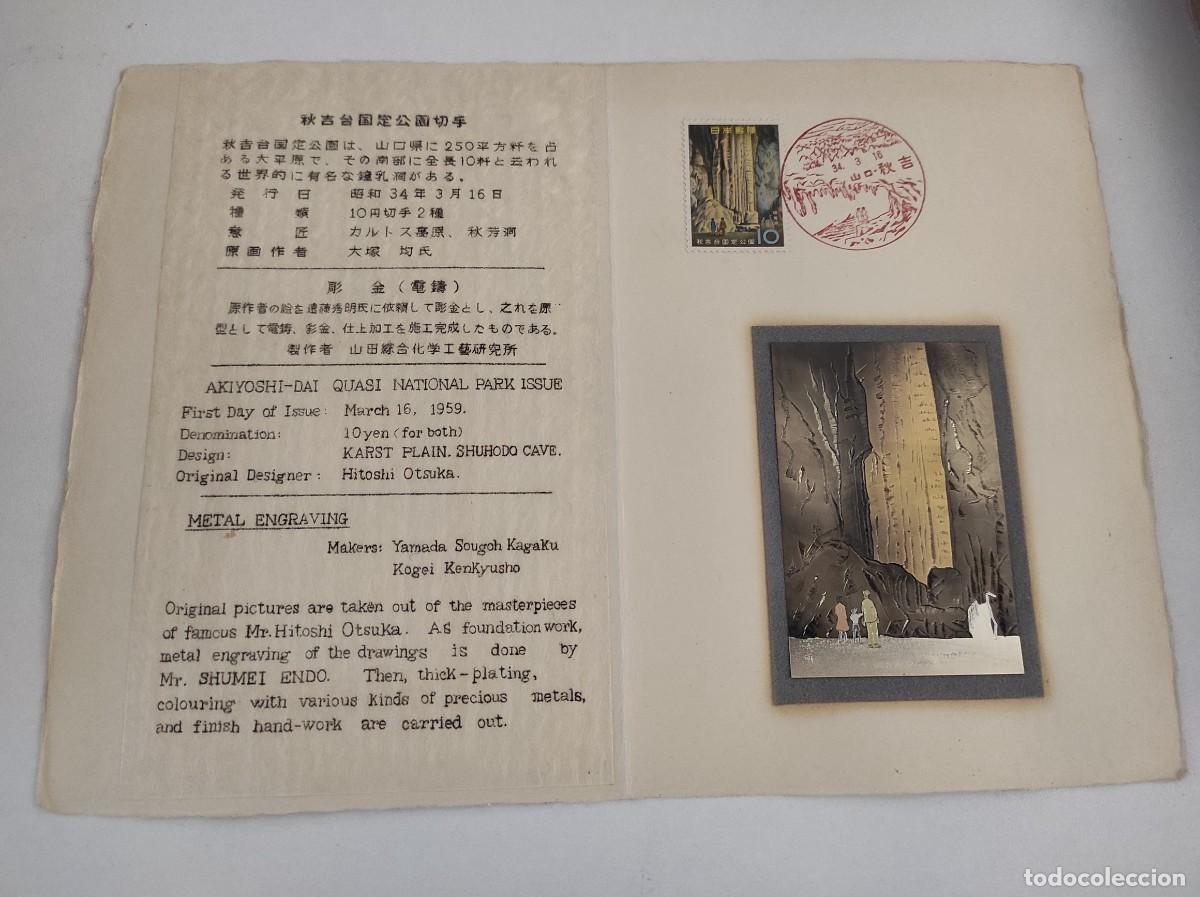 秋吉台国定公園切手
秋吉台国定公園は、山口県に250平方粁を占
ある大平原で、その南部に全長10粁と云われ
る世界的に有名な鐘乳洞がある。
発行日 昭和34年3月16日
種類 10円切手2種
意匠 カルトス高原、秋芳洞
原画作者 大塚 均氏
彫金(電鋳)
原作者の絵を遠藤秀明氏に依頼して彫金とし、之れを原
型として電鋳、彩金、仕上加工を施工完成したものである。
製作者 山田綜合化学工藝研究所
AKIYOSHI-DAI QUASI NATIONAL PARK ISSUE
First Day of Issue: March 16, 1959.
Denomination: 10yen (for both)
Design: KARST PLAIN. SHUHODO CAVE.
Original Designer: Hitoshi Otsuka.
METAL ENGRAVING
Makers: Yamada Sougoh Kagaku
Kogei Kenkyusho
Original pictures are taken out of the masterpieces
of famous Mr. Hitoshi Otsuka. As foundation work,
metal engraving of the drawings is done by
Mr. SHUMEI ENDO. Then, thick-plating,
colouring with various kinds of precious metals,
and finish hand-work are carried out.
日本郵便
秋吉台国定公園 10
34.3.16
山口・秋吉
todocoleccion